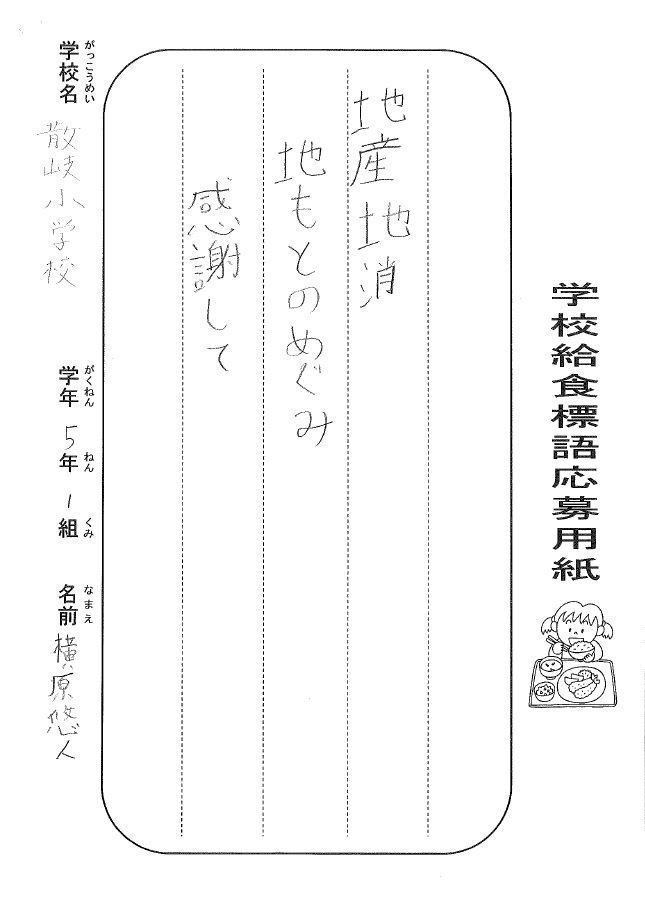 学校給食標語応募用紙
地産地消
地もとのめぐみ
感謝して
がっこうめい
学校名 散岐小学校
がくねん ねん くみ
学年 5年 1組
なまえ
名前 横原悠人